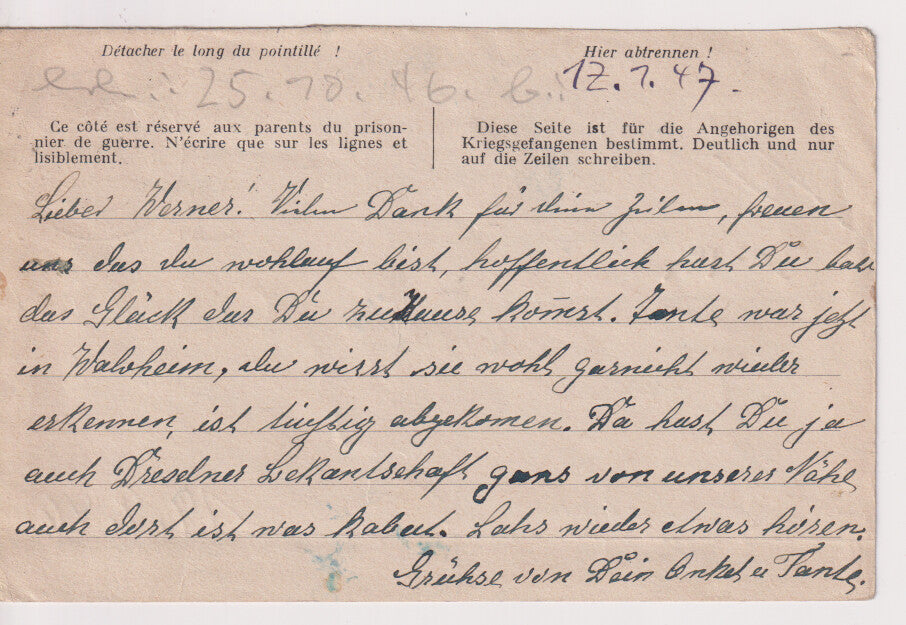 Détacher le long du pointillé !
Hier abtrennen !
25.10.46. b.: 12.1.47.
Ce côté est réservé aux parents du prison-
nier de guerre. N'écrire que sur les lignes et
lisiblement.
Diese Seite ist für die Angehorigen des
Kriegsgefangenen bestimmt. Deutlich und nur
auf die Zeilen schreiben.
Lieber Werner! Vielen Dank für deine Zeilen, freuen
uns das du wohlauf bist, hoffentlich hast Du bald
das Glück das Du zu Hause kommst. Tante war jetzt
in Waldheim, du wirst sie wohl garnicht wieder
erkennen, ist tüchtig abgekomen. Da hast Du ja
auch Dresdner Bekantschaft gans von unserer Nähe
auch dort ist was kabut. Lahs wieder etwas hören.
Grühse von Dein Onkel u Tante.